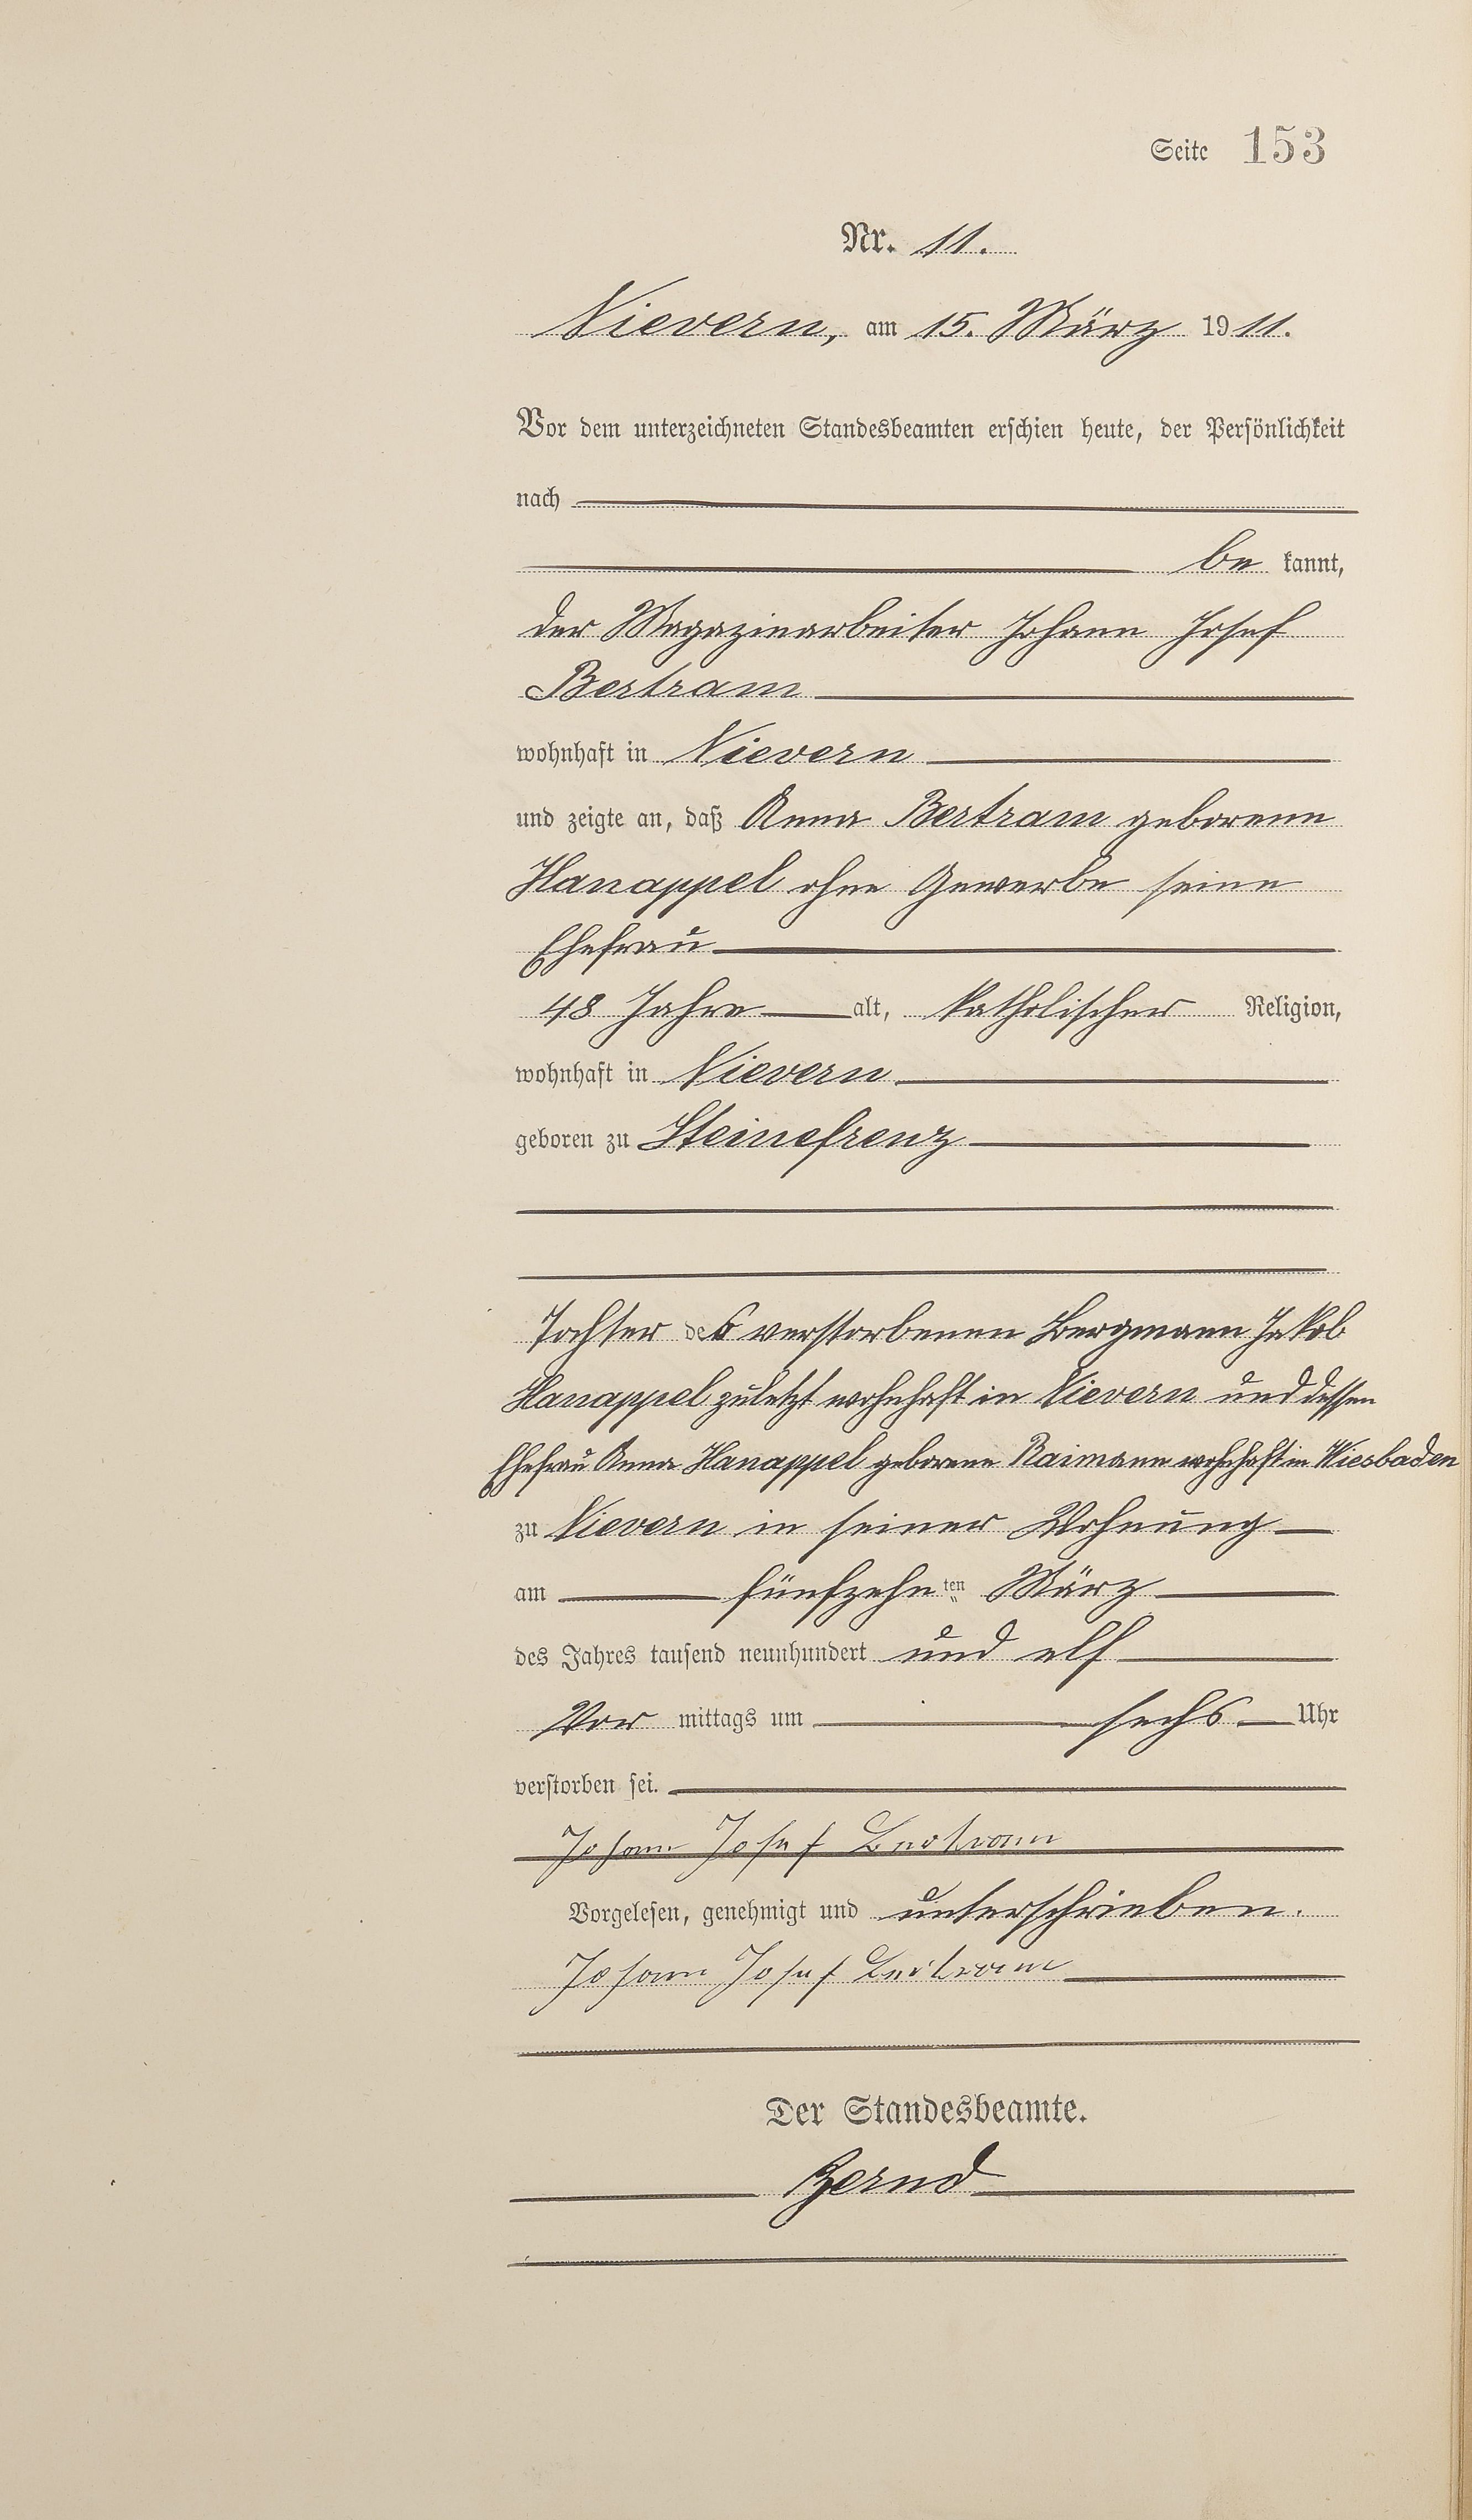 Seite 153
Nr. 11.
Nievern, am 15. März 1911.
Vor dem unterzeichneten Standesbeamten erschien heute, der Persönlichkeit
nach
be kannt,
der Magazinarbeiter Johann Josef
Bertram
wohnhaft in Nievern
und zeigte an, daß Anna Bertram geborene
Hanappel ohne Gewerbe seine
Ehefrau
48 Jahre alt, katholischer Religion,
wohnhaft in Nievern
geboren zu Steinefrenz
Tochter des verstorbenen Bergmann Jakob
Hanappel zuletzt wohnhaft in Nievern und dessen
Ehefrau Anna Hanappel geborene Raimann wohnhaft in Wiesbaden
zu Nievern in seiner Wohnung
am fünfzehnten März
des Jahres tausend neunhundert und elf
Vor mittags um sechs Uhr
verstorben sei.
Johann Josef Bertram
Vorgelesen, genehmigt und unterschrieben.
Johann Josef Bertram
Der Standesbeamte.
Zernd